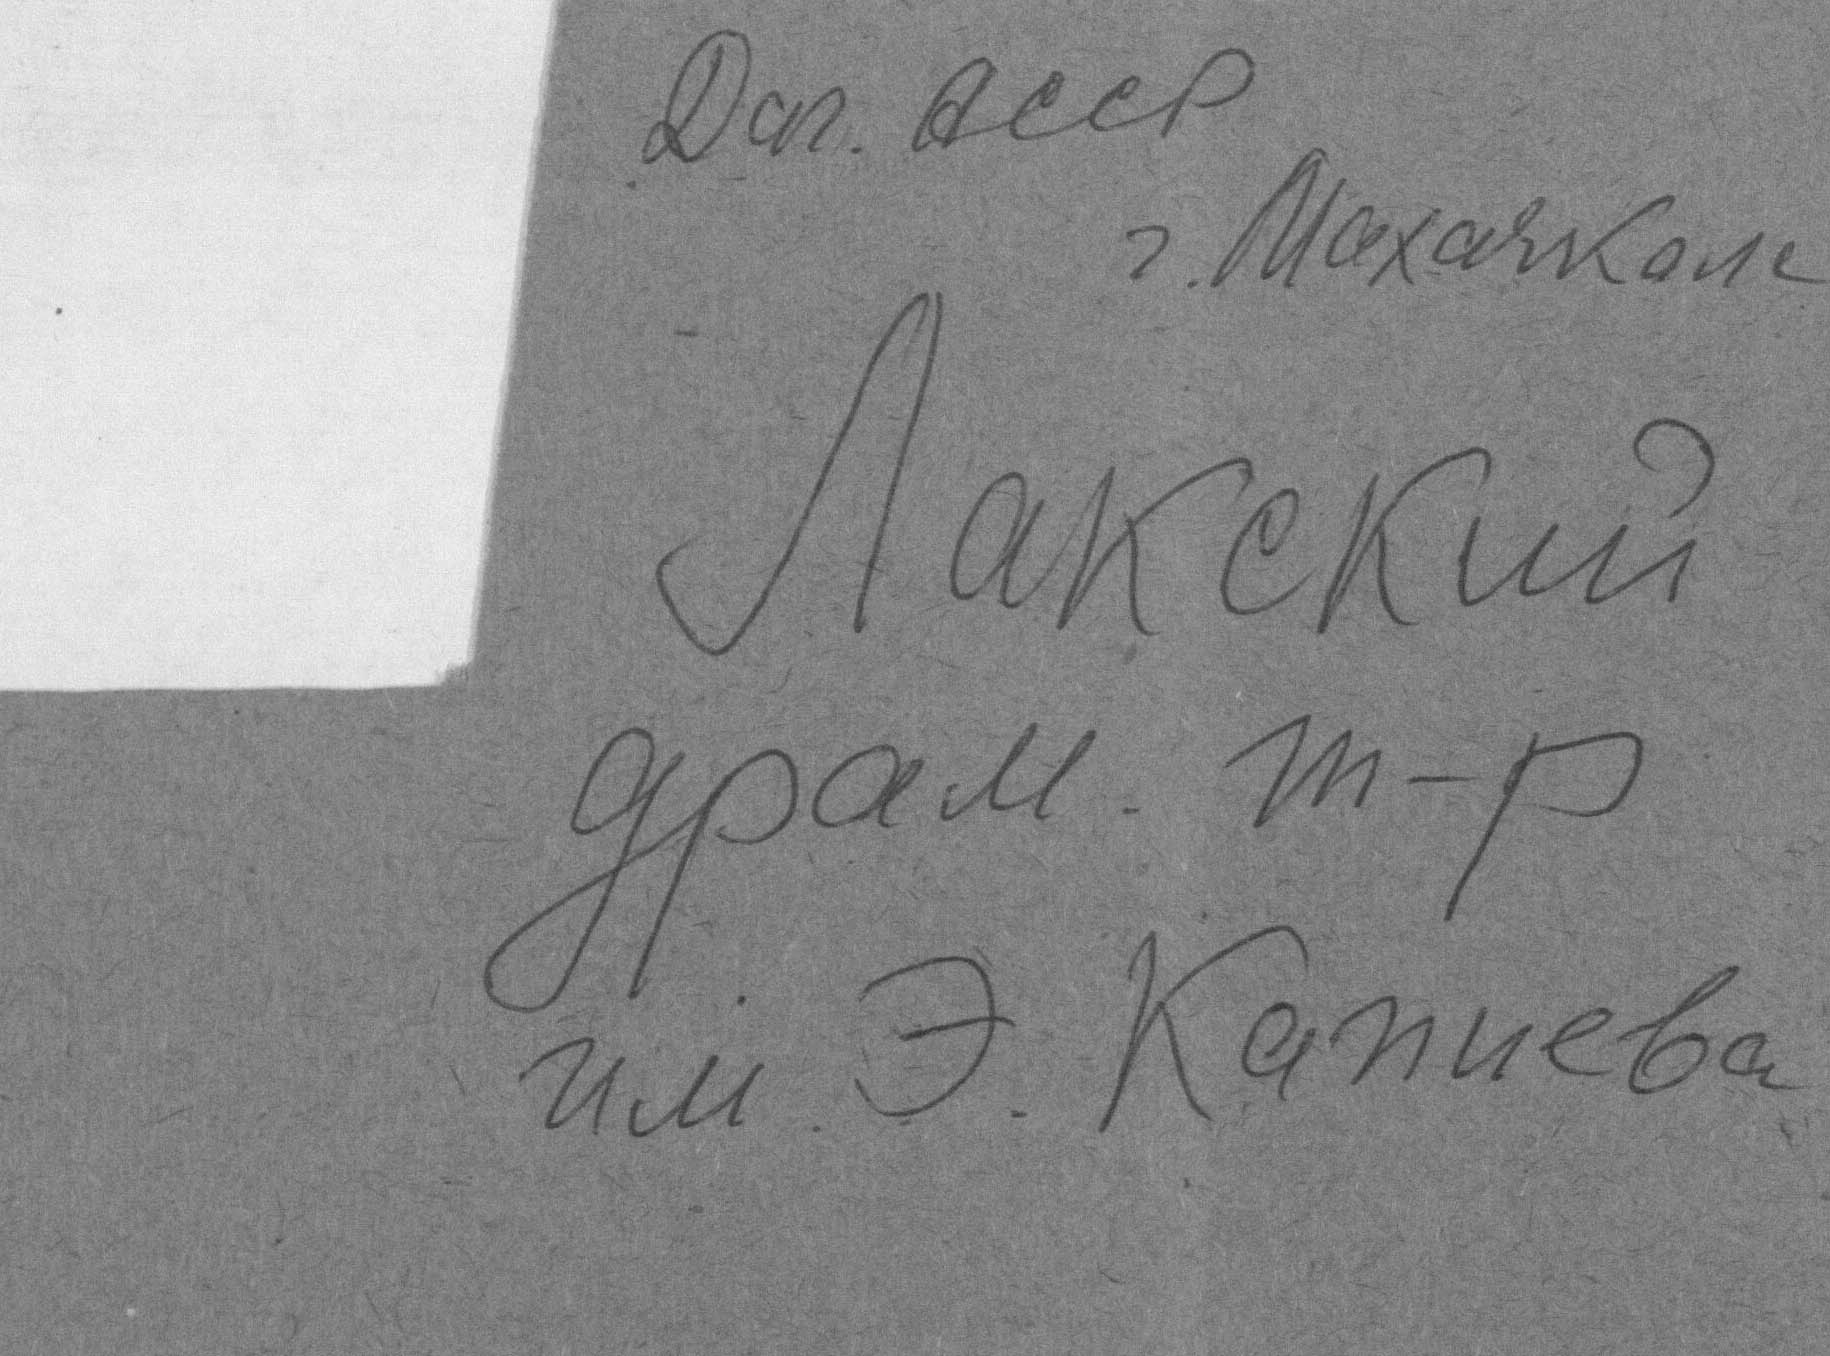 Даг. АССР
г. Махачкала
Лакский
драм. т-р
им. Э. Капиева